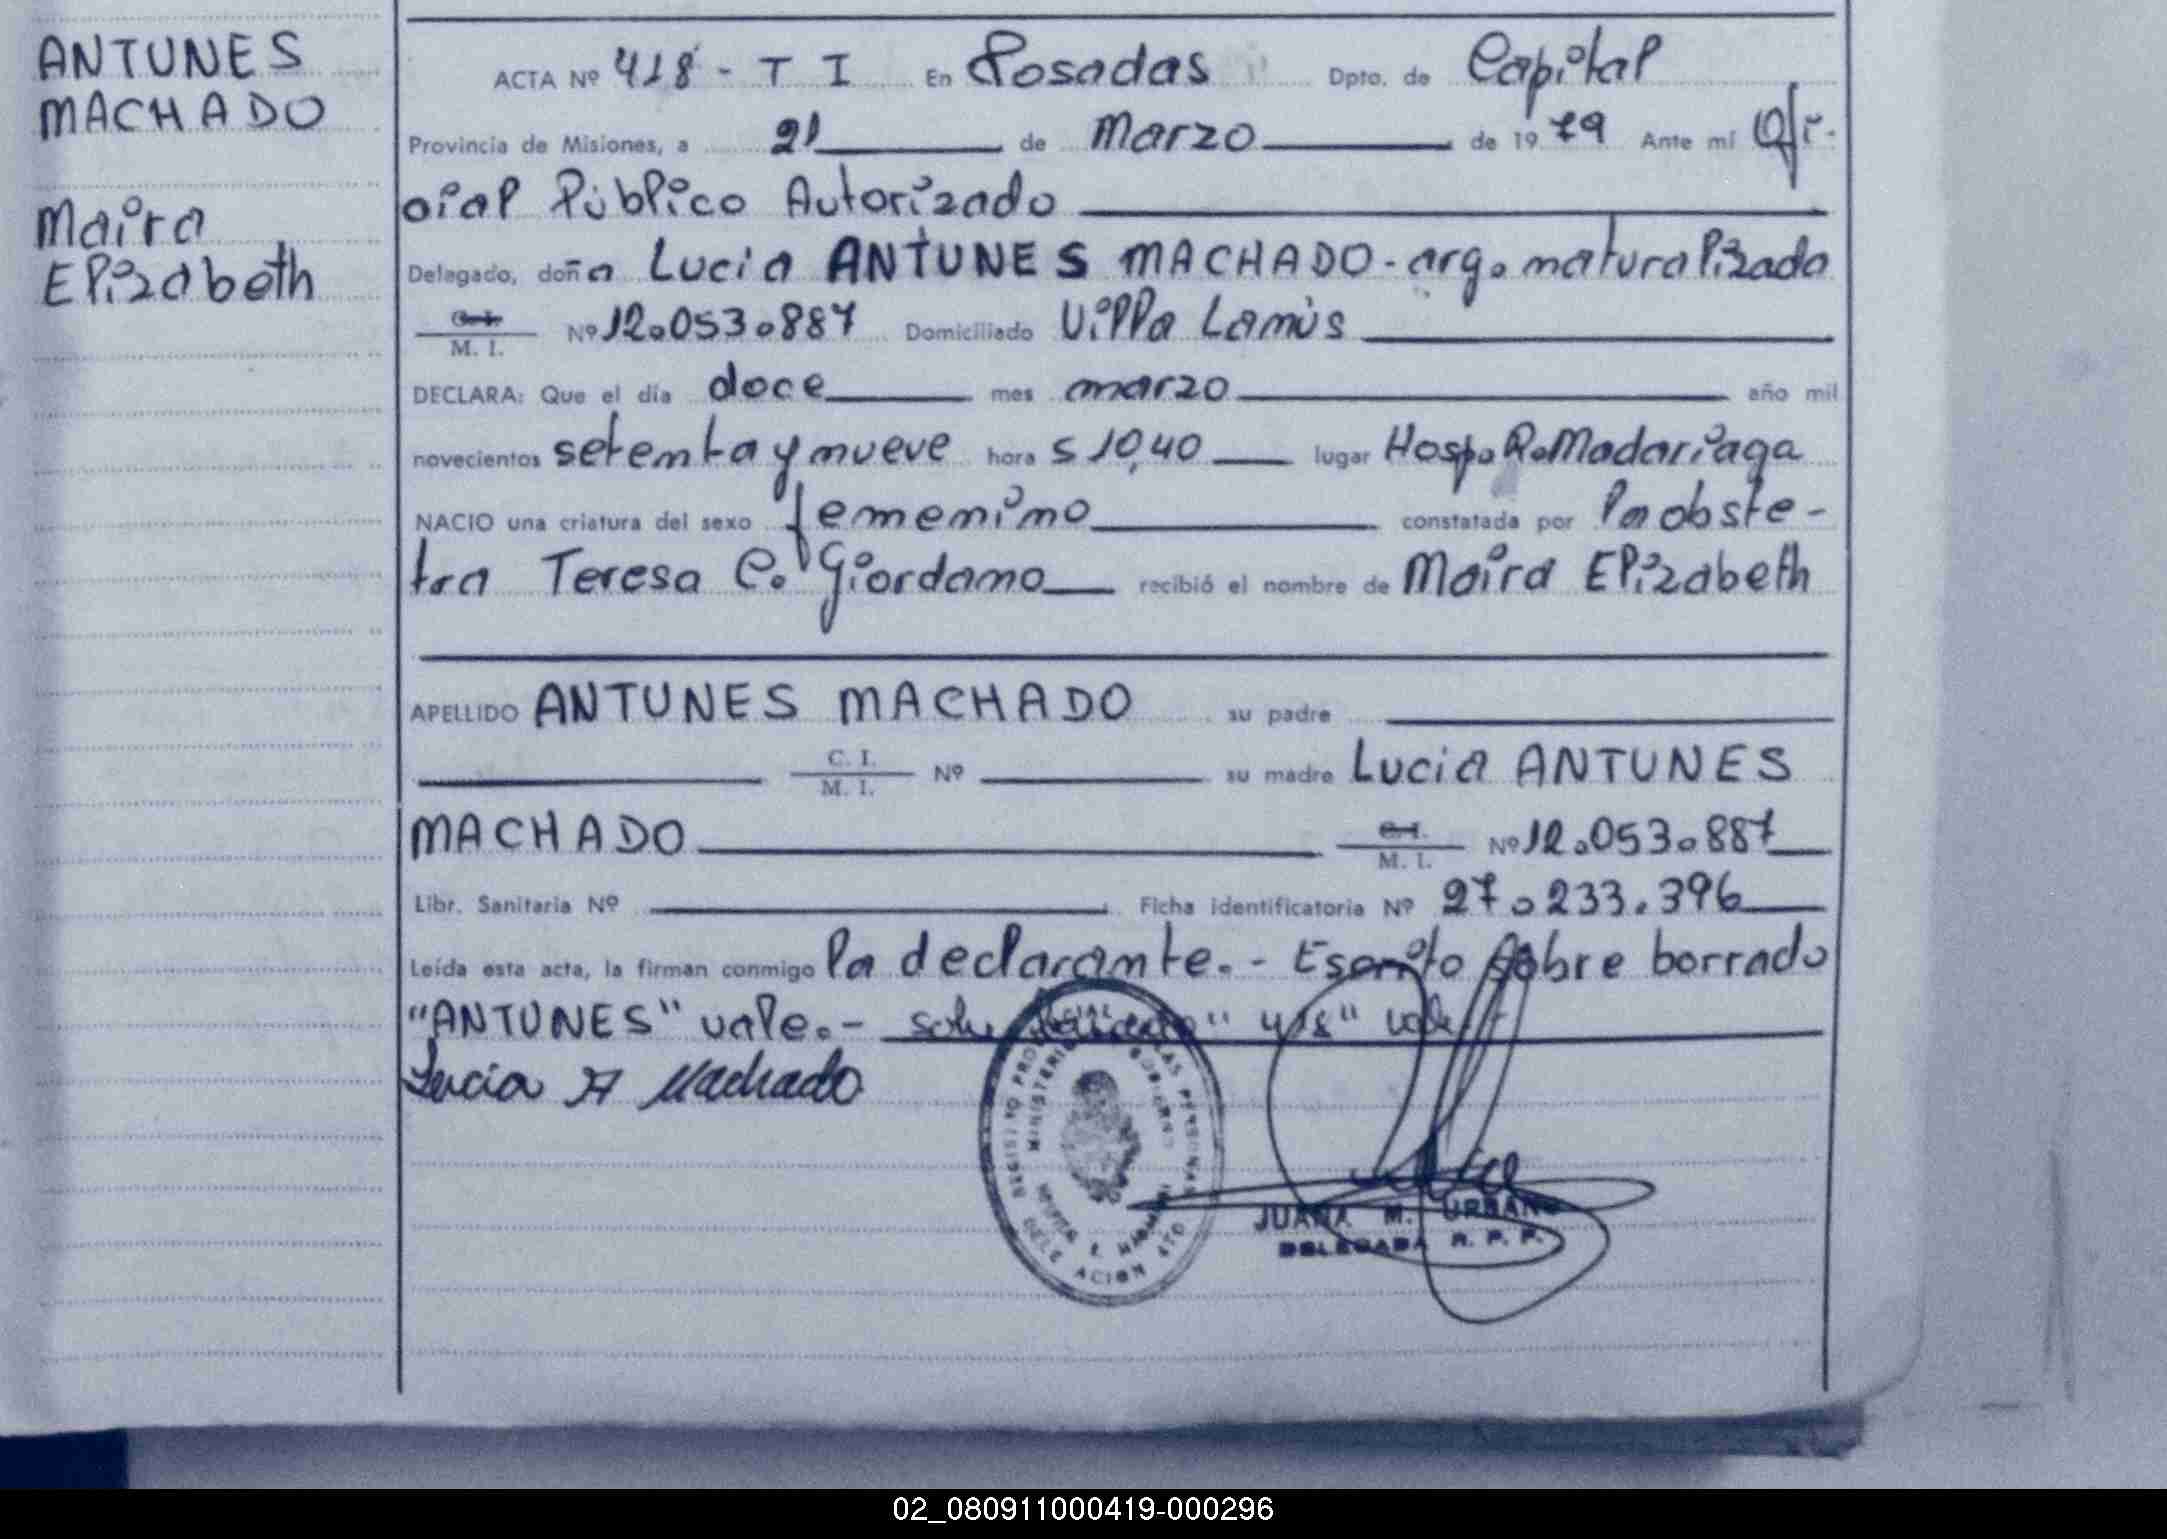 ANTUNES
MACHADO
Maira
Elizabeth
ACTA Nº 418 - T I En Posadas Dpto. de Capital
Provincia de Misiones, a 21 de Marzo de 1979 Ante mí Ofi-
cial Público Autorizado
Delegado, doña Lucia ANTUNES MACHADO - arg. naturalizada
C. I.
M. I. Nº 12.053.887 Domiciliado Villa Lanús
DECLARA: Que el día doce mes marzo año mil
novecientos setenta y nueve hora s 10,40 lugar Hosp. R. Madariaga
NACIO una criatura del sexo femenino constatada por la obste-
tra Teresa C. Giordano recibió el nombre de Maira Elizabeth
APELLIDO ANTUNES MACHADO su padre
C. I.
M. I. Nº su madre Lucia ANTUNES
MACHADO C. I.
M. I. Nº 12.053.887
Libr. Sanitaria Nº Ficha identificatoria Nº 27.233.396
Leída esta acta, la firman conmigo la declarante. - Escrito sobre borrado
"ANTUNES" vale. - "418" vale
Lucia A Machado
REGISTRO PROVINCIAL DE LAS PERSONAS
MINISTERIO GOBIERNO
DELEGACION
JUANA M. URBANO
DELEGADA R. P. P.
02_080911000419-000296